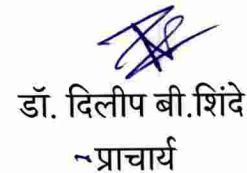 डॉ. दिलीप बी.शिंदे
प्राचार्य